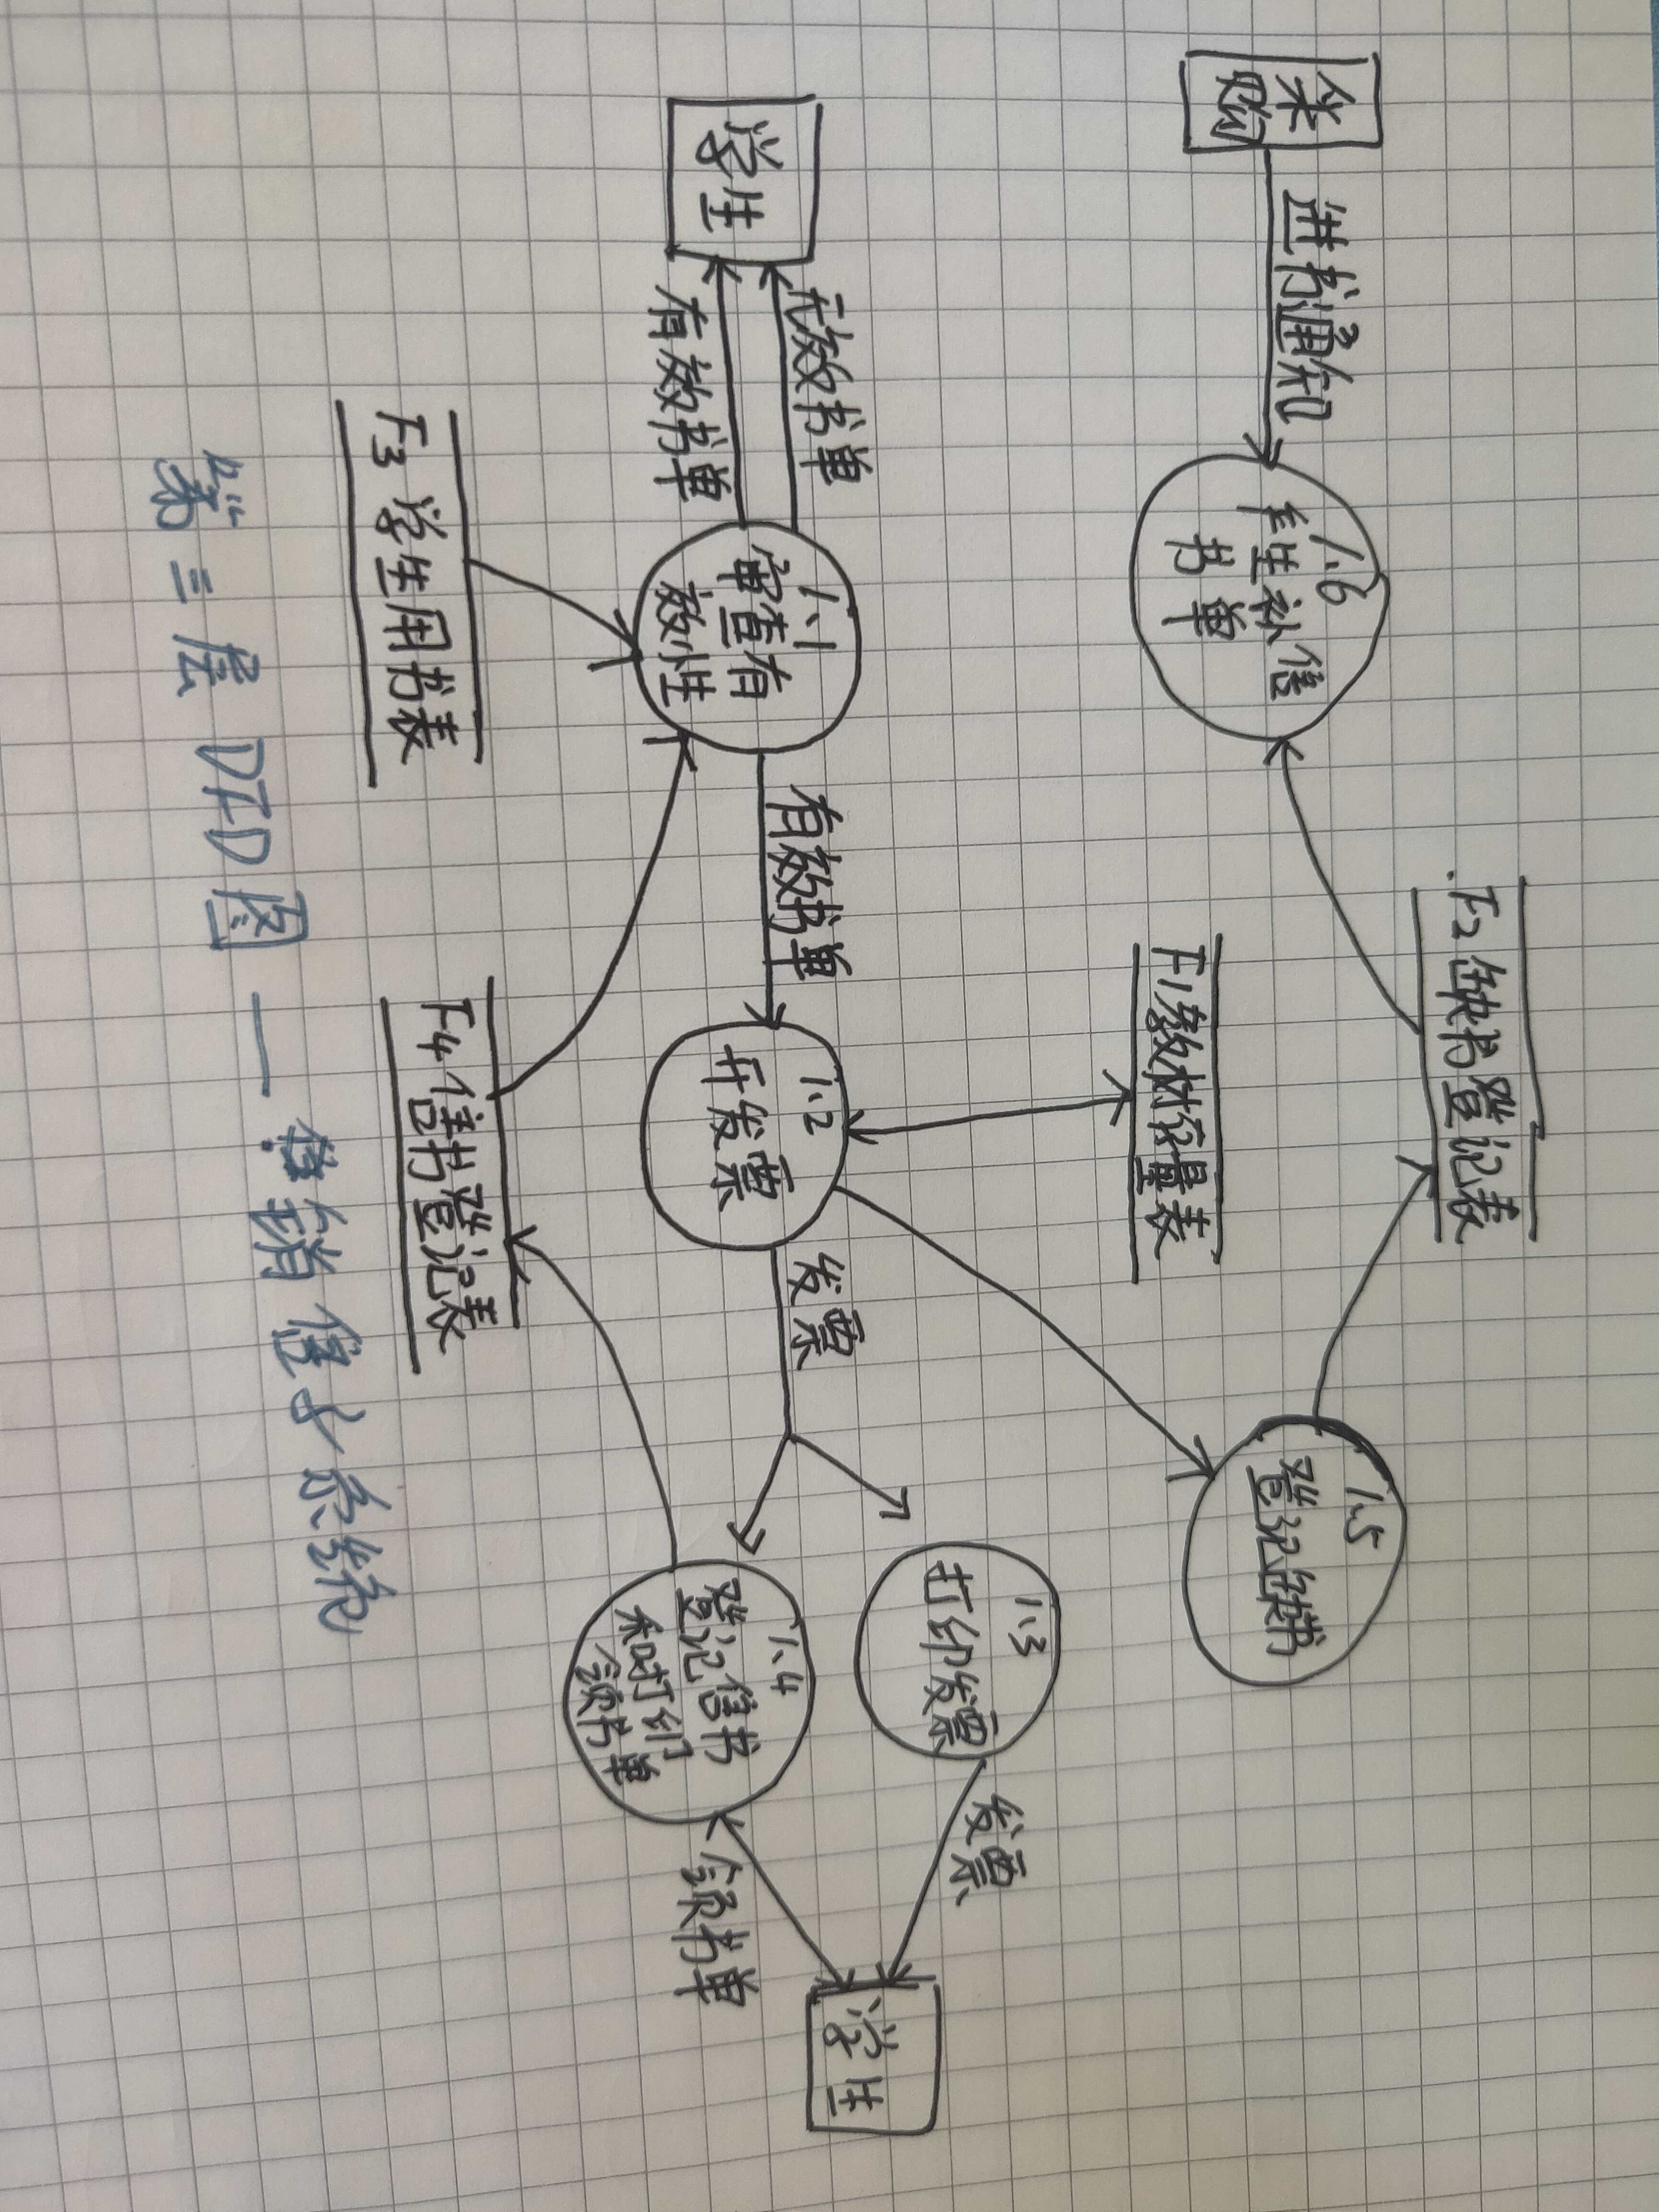 采
购
进书通知
1.6
产生补售
书单
F2缺书登记表
1.5
登记缺书
F1教材存量表
学生
无效书单
有效书单
1.1
审查有
效性
有效书单
1.2
开发票
发票
1.3
打印发票
发票
1.4
登记售书
和打印
领书单
领书单
学生
F3 学生用书表
F4 售书登记表
第三层 DFD图 — 销售子系统